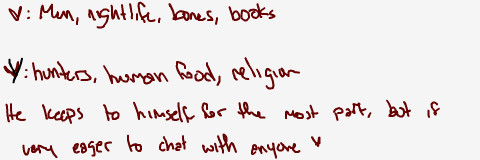 ♥: Men, nightlife, bones, books
♥: hunters, human food, religion
He keeps to himself for the most part, but is
very eager to chat with anyone ♥